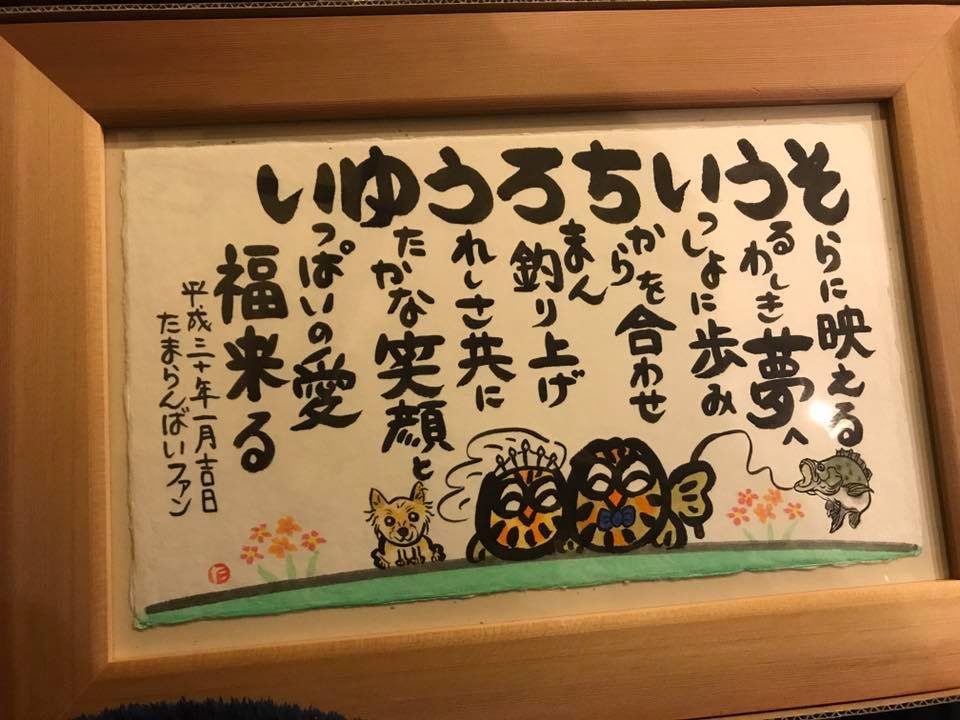 そらに映える
うるわしき夢へ
いっしょに歩み
ちからを合わせ
ろまん釣り上げ
うれしさ共に
ゆたかな笑顔と
いっぱいの愛
福来る
平成三十年一月吉日
たまらんばいファン
た